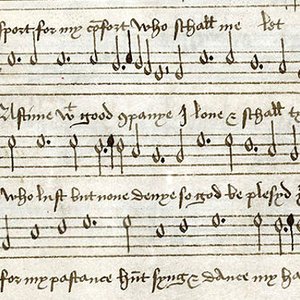 sport for my cōfort who shall me let
Pastime wt good 9panye I love & shall ty
who lust but none denye so god be plesyd
for my pastance hūt syng & dance my ha